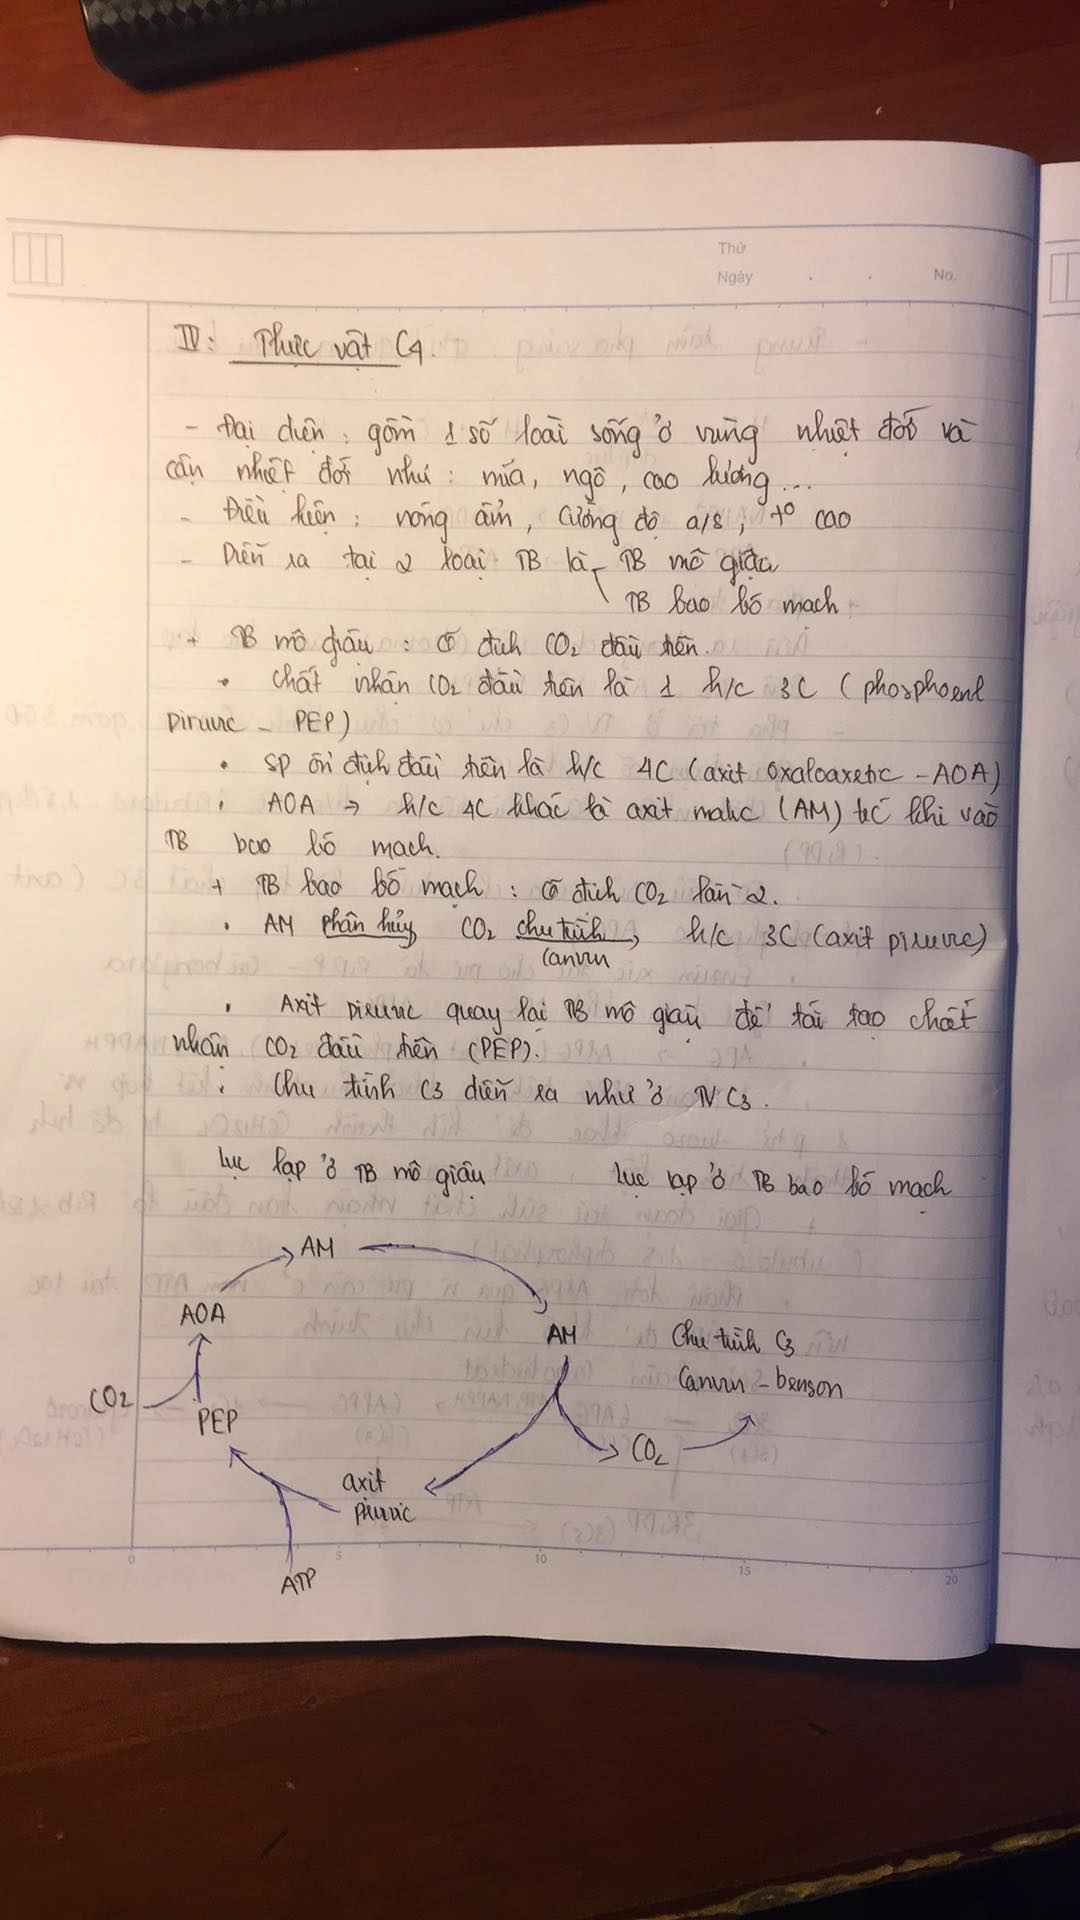 Thứ
Ngày . . No.
IV: Thực vật C4.
- Đại diện: gồm 1 số loài sống ở vùng nhiệt đới và
cận nhiệt đới như: mía, ngô, cao lương...
- Điều kiện: nóng ẩm, cường độ a/s, t° cao
- Diễn ra tại 2 loại TB là TB mô giậu
TB bao bó mạch
+ TB mô giậu: cố định CO2 đầu tiên.
• chất nhận CO2 đầu tiên là 1 h/c 3C (phosphoenl
piruvic - PEP)
• SP ổn định đầu tiên là h/c 4C (axit oxaloaxetic - AOA)
• AOA → h/c 4C khác là axit malic (AM) trc khi vào
TB bao bó mạch.
+ TB bao bó mạch: cố định CO2 lần 2.
• AM phân hủy CO2 chu trình h/c 3C (axit piruvic)
canvin
• Axit piruvic quay lại TB mô giậu để tái tạo chất
nhận CO2 đầu tiên (PEP).
• Chu trình C3 diễn ra như ở TV C3.
Lục lạp ở TB mô giậu Lục lạp ở TB bao bó mạch
AM
AOA
AM Chu trình C3
Canvin - benson
CO2
PEP
CO2
axit
piruvic
ATP
0 5 10 15 20